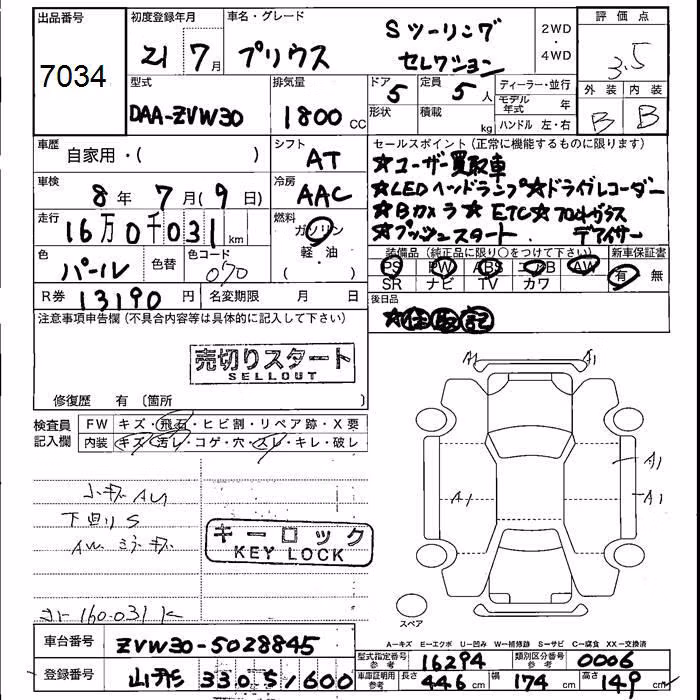 出品番号 初度登録年月 車名・グレード 2WD ・ 4WD 評価点
7034 21 7月 プリウス Sツーリング セレクション 3.5
型式 排気量 ドア 5 定員 5人 ディーラー・並行 外装 内装
DAA-ZVW30 1800 CC 形状 積載 kg モデル年式 年 B B
ハンドル 左・右
車歴 シフト セールスポイント (正常に機能するものに限ります)
自家用・( ) AT ☆ユーザー買取車
車検 冷房 ☆LEDヘッドランプ☆ドライブレコーダー
8年 7月(9日) AAC ☆Bカメラ☆ETC☆フロントガラス
走行 燃料 ☆プッシュスタート デアイサー
16万0千031km ガソリン
色 色替 色コード 軽・油 装備品 (純正品に限り○をつけて下さい) 新車保証書
パール 070 ( ) PS PW ABS エアB AW 有 無
SR ナビ TV カワ
R券 13190円 名変期限 月 日 後日品
注意事項申告欄 (不具合内容等は具体的に記入して下さい) ☆保取記
売切りスタート
SELLOUT
A1 A1
修復歴 有 〔箇所 〕
検査員 FW キズ・飛石・ヒビ割・リペア跡・X要
記入欄 内装 キズ・汚レ・コゲ・穴・スレ・キレ・破レ
A1
A1 A1
下回りS
キーロック
KEY LOCK
160.031K
スペア
A−キズ E−エクボ U−凹み W−補修跡 S−サビ C−腐食 XX−交換済
車台番号 ZVW30-5028845 型式指定番号 参考 16294 類別区分番号 参考 0006
登録番号 山形 330 す/600 車庫証明用 参考 長さ 446cm 幅 174cm 高さ 149cm